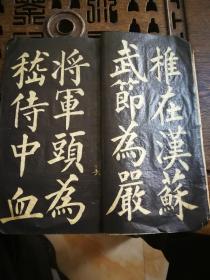 椎在漢蘇
武節為嚴
将軍頭為
嵇侍中血